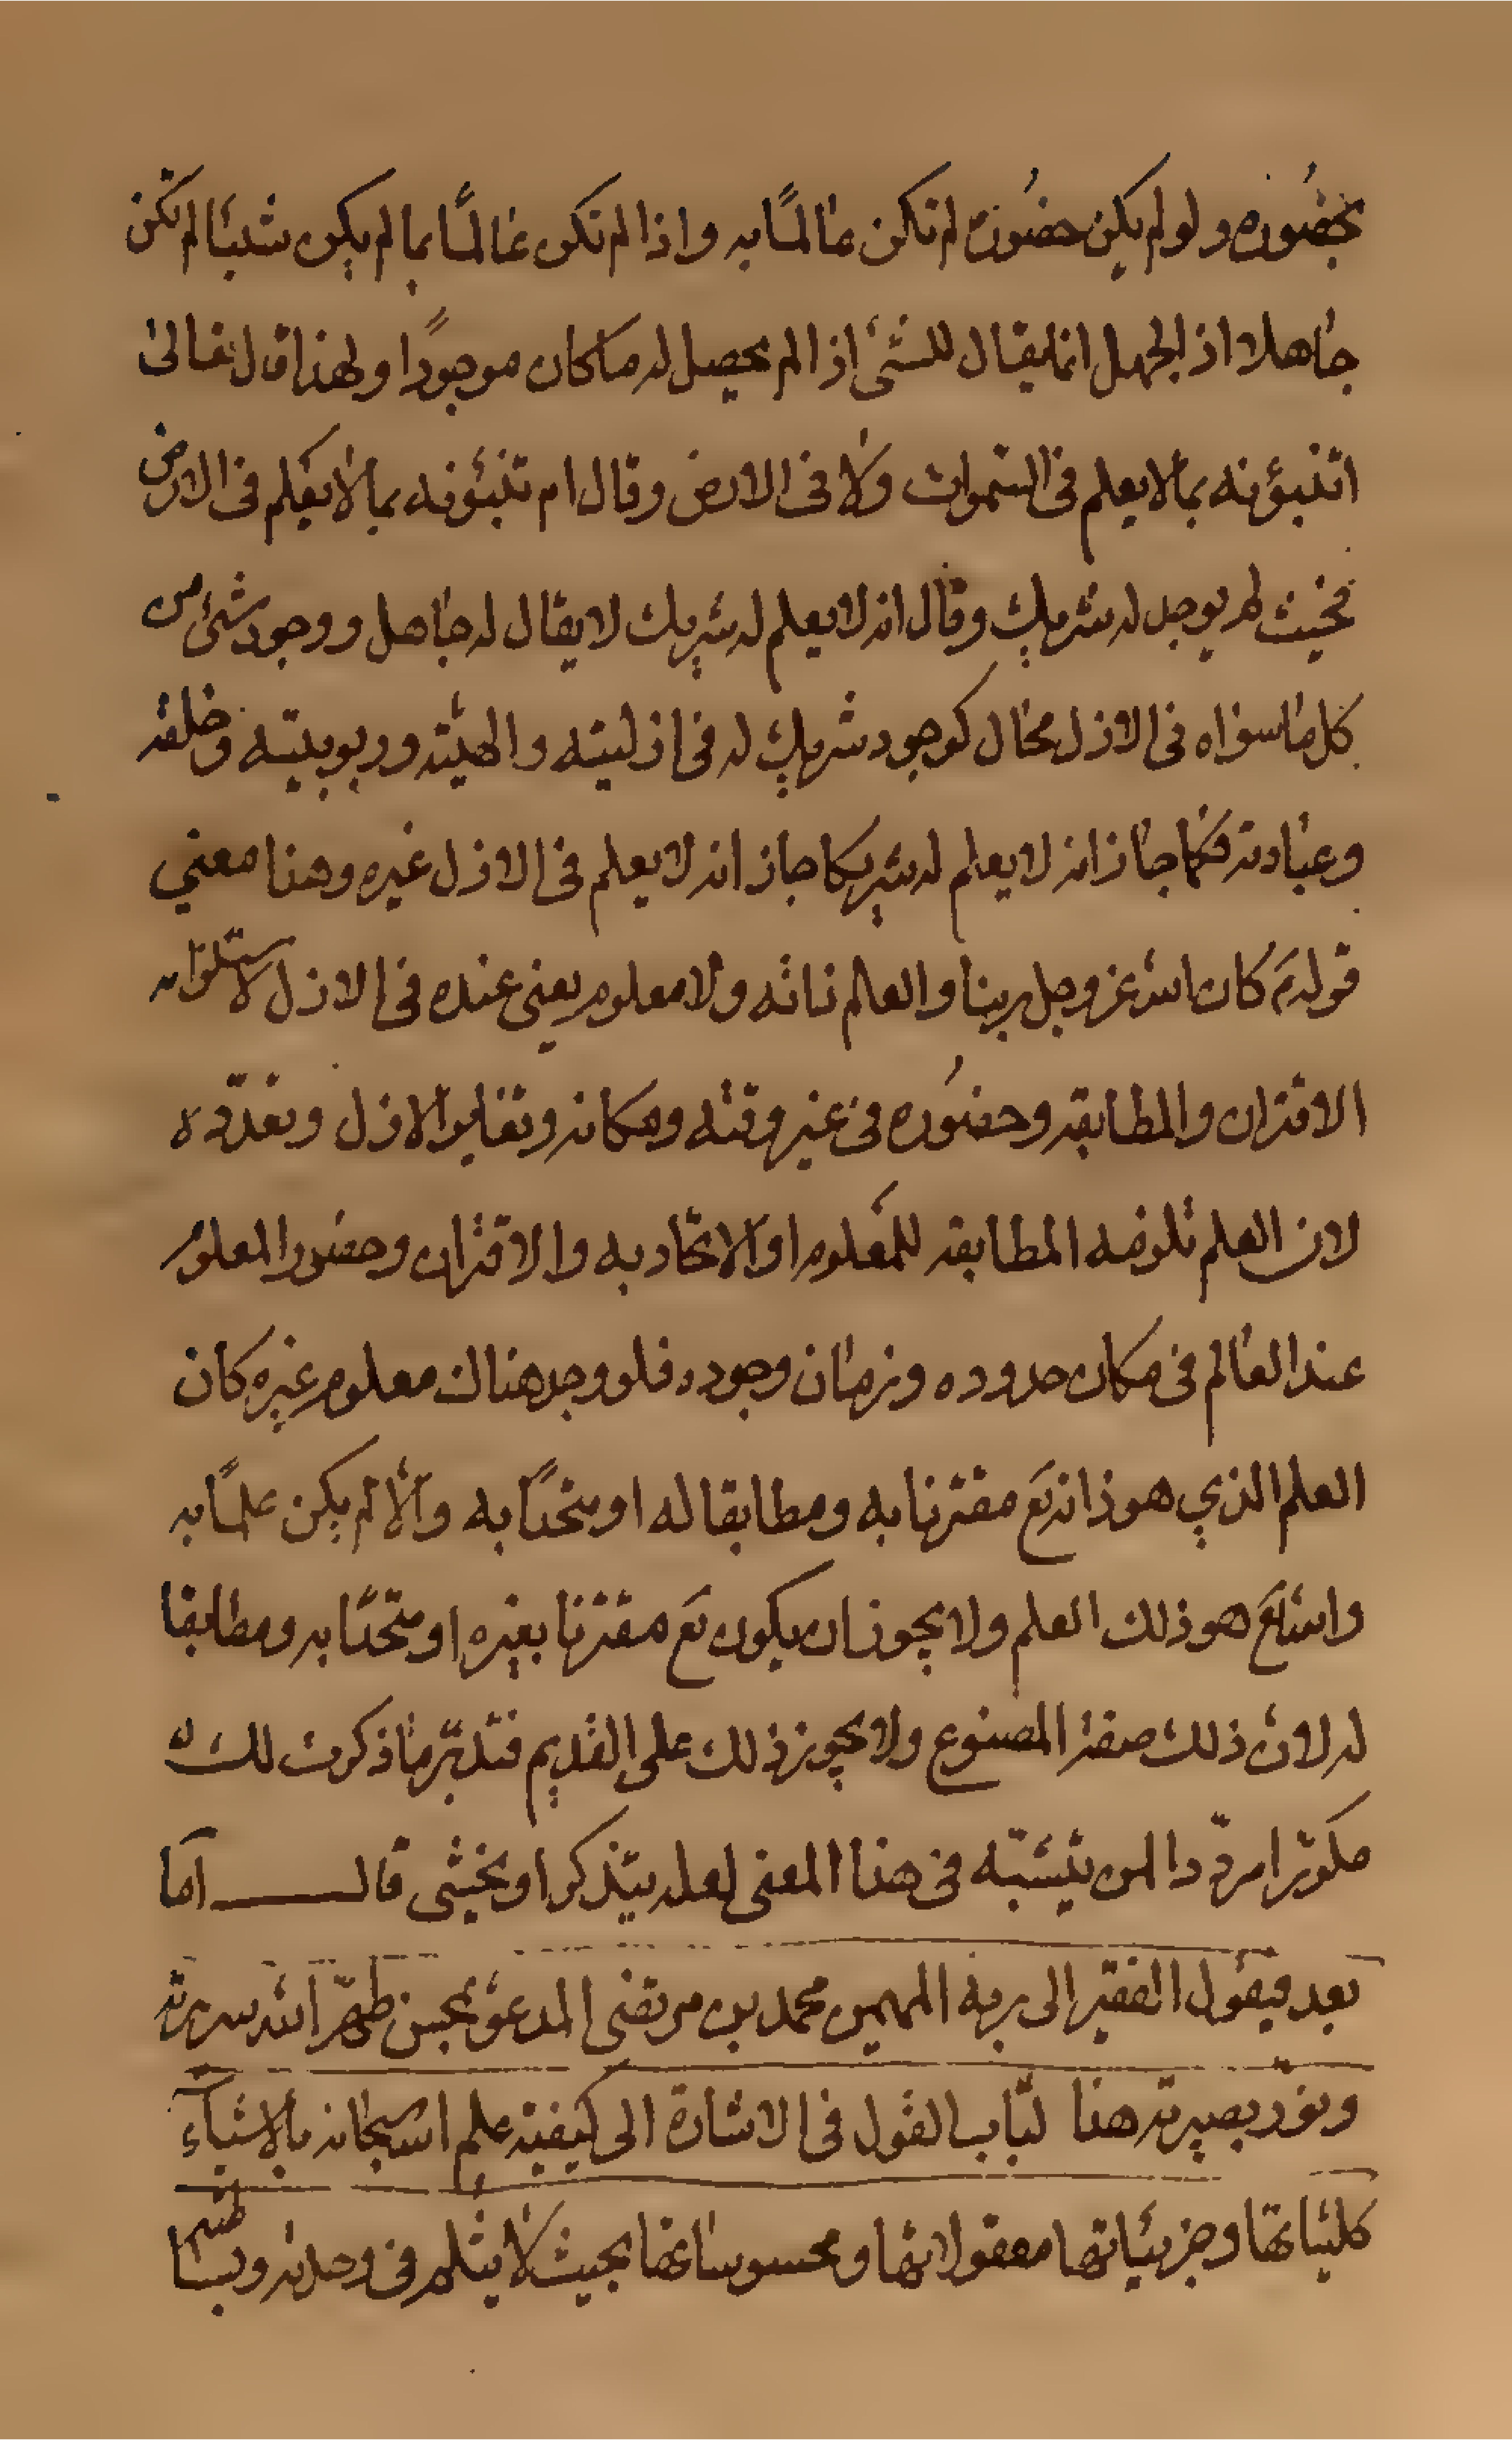 بحضوره ولو لم يكن حضوره لم تكن عالمًا به واذا لم تكن عالمًا بما لم يكن شيئا لم تكن
جاهلا اذ الجهل انما يقال للشئ اذا لم يحصل له ما كان موجودًا ولهذا قال تعالى
اتنبؤنه بما لا يعلم فى السموات ولا فى الارض وقال ام تنبئونه بما لا يعلم فى الارض
فحيث لم يوجد له شريك وقال انه لا يعلم له شريك لا يقال له جاهل ووجود شئ من
كل ما سواه فى الازل محال كوجود شريك له فى ازليته والهيته وربوبيته وخلقه
وعبادته فكما جاز انه لا يعلم له شريكا جاز انه لا يعلم فى الازل غيره وهذا معني
قوله ع كان الله عز وجل ربنا والعلم ذاته ولا معلوم يعنى عنده فى الازل لاستلزامه
الاقتران والمطابقه وحضوره فى غير وقته ومكانه وتغاير الازل وتعدّده
لان العلم تلزمه المطابقه للمعلوم او الاتحاد به والاقتران وحضور المعلوم
عند العالم فى مكان حدوده وزمان وجوده فلو وجد هناك معلوم غيره كان
العلم الذي هو ذاته تع مقترنا به ومطابقا له او متحدًا به والّا لم يكن علمًا به
والله تع هو ذلك العلم ولا يجوز ان يكون تع مقترنا بغيره او متحدًا به ومطابقا
له لان ذلك صفة المصنوع ولا يجوز ذلك على القديم فتدبّر ما ذكرت لك
مكررا مردّدا لمن يتشبّه فى هذا المعنى لعله يتذكر او يخشى قال امّا
بعد فيقول الفقير الى ربه المهيمن محمد بن مرتضى المدعو بمحسن طهّر الله سريرته
ونوّر بصيرته هذا لباب القول فى الاشارة الى كيفية علم الله سبحانه بالاشيآء
كلياتها وجزئياتها معقولاتها ومحسوساتها بحيث لا ينثلم فى وحدته وبساطته